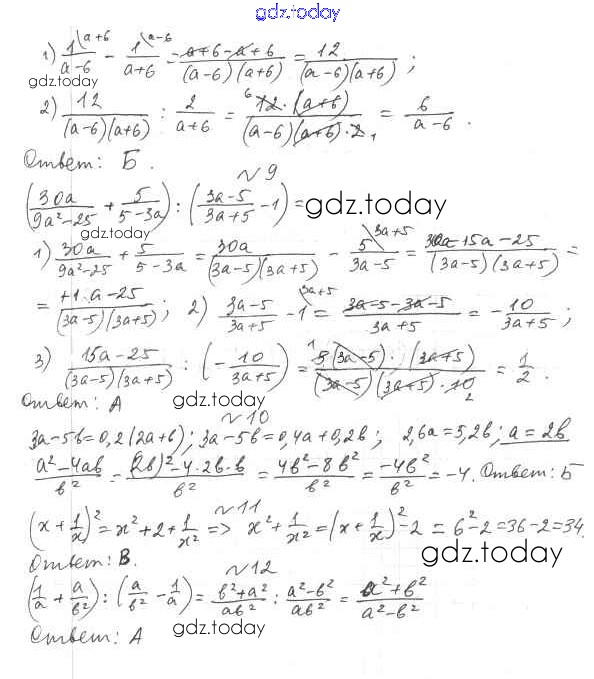 gdz.today
1) 1\a+6/(a-6) - 1\a-6/(a+6) = (a+6-a+6)/((a-6)(a+6)) = 12/((a-6)(a+6)) ;
gdz.today
2) 12/((a-6)(a+6)) : 2/(a+6) = (⁶12·(a+6))/((a-6)(a+6)·2₁) = 6/(a-6) .
Ответ: Б .
№9
(30a/(9a²-25) + 5/(5-3a)) : ((3a-5)/(3a+5) - 1) =
gdz.today
1) 30a/(9a²-25) + 5/(5-3a) = 30a/((3a-5)(3a+5)) - 5\3a+5/(3a-5) = (30a-15a-25)/((3a-5)(3a+5)) =
= (a-25)/((3a-5)(3a+5)) ; 2) (3a-5)/(3a+5) - 1\3a+5 = (3a-5-3a-5)/(3a+5) = -10/(3a+5) ;
3) (15a-25)/((3a-5)(3a+5)) : (-10/(3a+5)) = (¹5(3a-5)·(3a+5))/((3a-5)(3a+5)·10₂) = 1/2 .
Ответ: А
gdz.today
№10
3a-5b=0,2(2a+b); 3a-5b=0,4a+0,2b; 2,6a=5,2b; a=2b
(a²-4ab)/b² = ((2b)²-4·2b·b)/b² = (4b²-8b²)/b² = -4b²/b² = -4. Ответ: Б
№11
(x+1/x)² = x²+2+1/x² => x²+1/x² = (x+1/x)²-2 = 6²-2=36-2=34.
Ответ: В.
gdz.today
№12
(1/a + a/b²) : (a/b² - 1/a) = (b²+a²)/(ab²) : (a²-b²)/(ab²) = (a²+b²)/(a²-b²)
Ответ: А
gdz.today